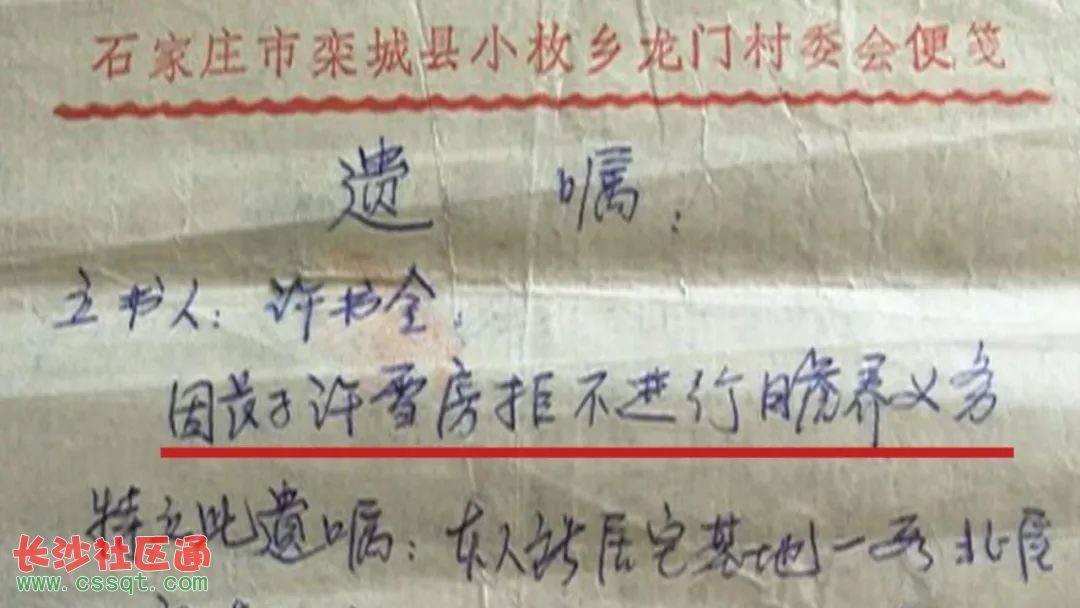 石家庄市栾城县小枚乡龙门村委会便笺
遗 嘱：
立书人：许书全，
因子许雪房拒不进行赡养义务
特立此遗嘱：本人居宅基地一北屋
长沙社区通
www.cssqt.com